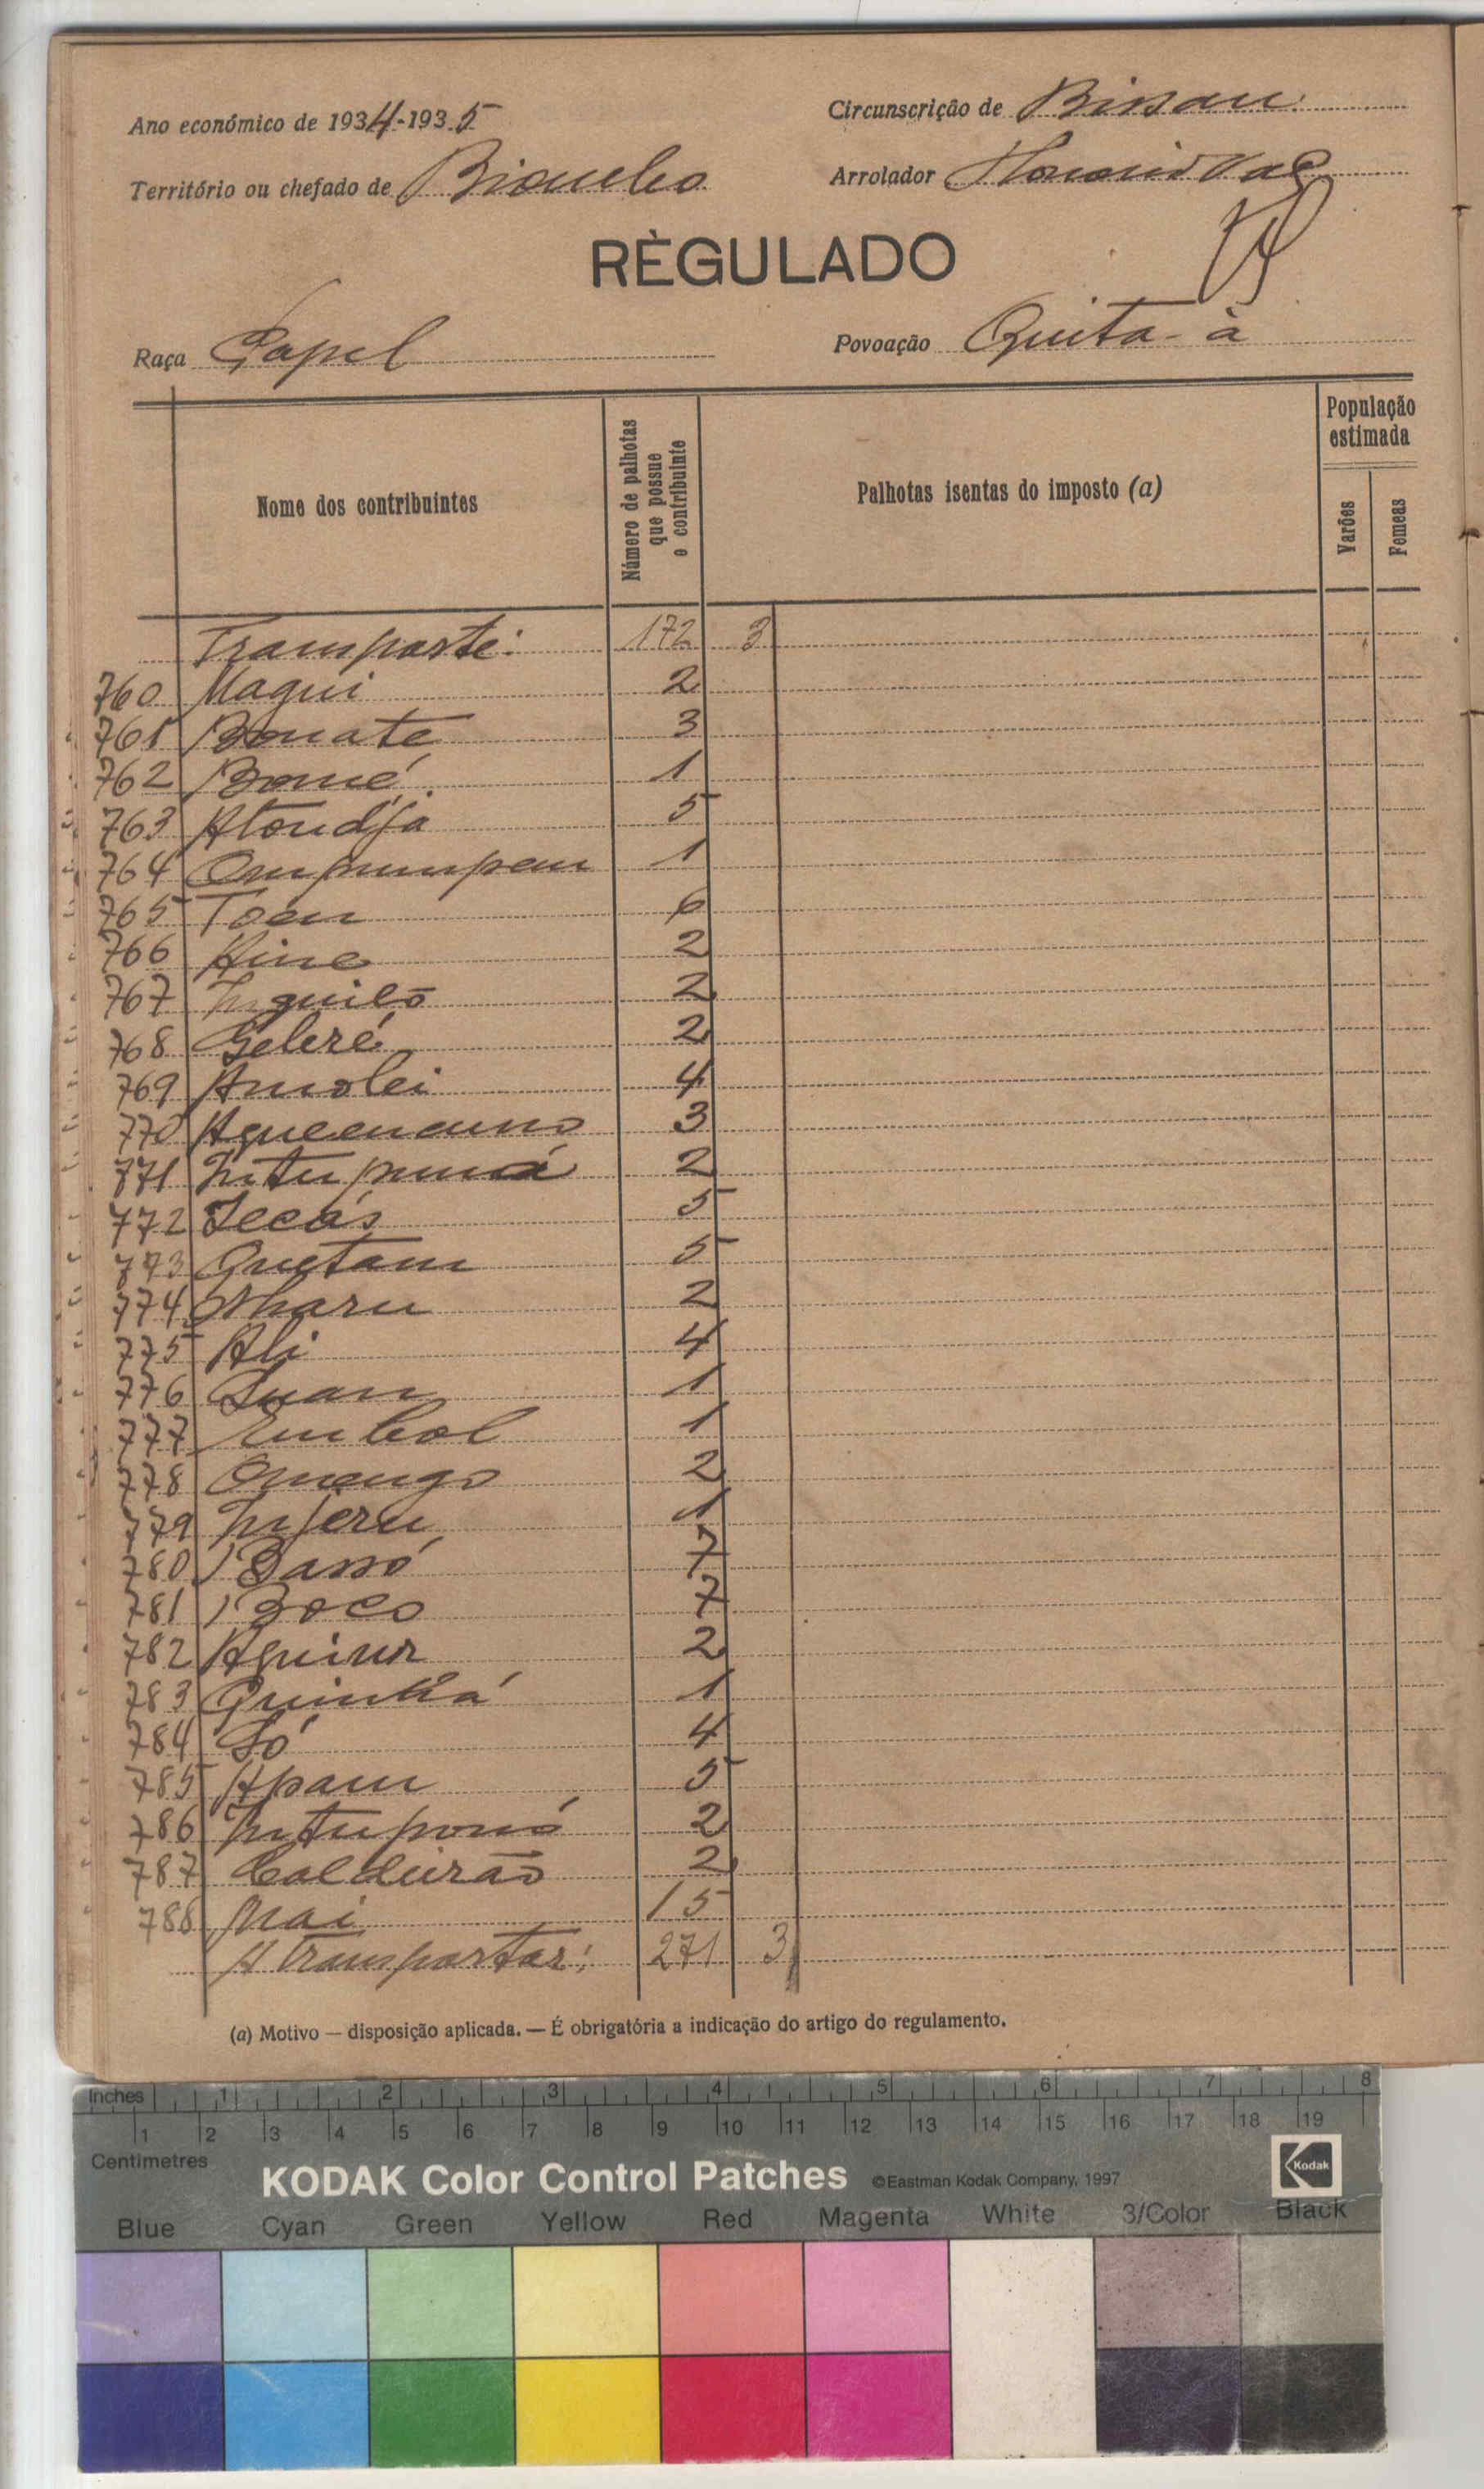 Ano económico de 1934-1935
Circunscrição de Bissau
Território ou chefado de Biombo
Arrolador Honorio Vaz
RÈGULADO
Raça Papel
Povoação Quita-à
Nome dos contribuintes
Número de palhotas que possue o contribuinte
Palhotas isentas do imposto (a)
População estimada
Varões
Femeas
Transporte: 172 3
760 Maqui 2
761 Bonate 3
762 Bomé 1
763 Atondja 5
764 1
765 Toem 6
766 Aine 2
767 2
768 Gebré 2
769 Amolei 4
770 3
771 2
772 Jecás 5
773 Quetam 5
774 Nharu 2
775 Ali 4
776 Luan 1
777 Embol 1
778 Omengo 2
779 1
780 Bassó 7
781 Boco 7
782 2
783 Quinhá 1
784 Só 4
785 Apam 5
786 2
787 Caldeirão 2
788 Nai 15
A transportar: 271 3
(a) Motivo — disposição aplicada. — É obrigatória a indicação do artigo do regulamento.
Inches 1 2 3 4 5 6 7 8
1 2 3 4 5 6 7 8 9 10 11 12 13 14 15 16 17 18 19
Centimetres
KODAK Color Control Patches ©Eastman Kodak Company, 1997 Kodak
Blue Cyan Green Yellow Red Magenta White 3/Color Black